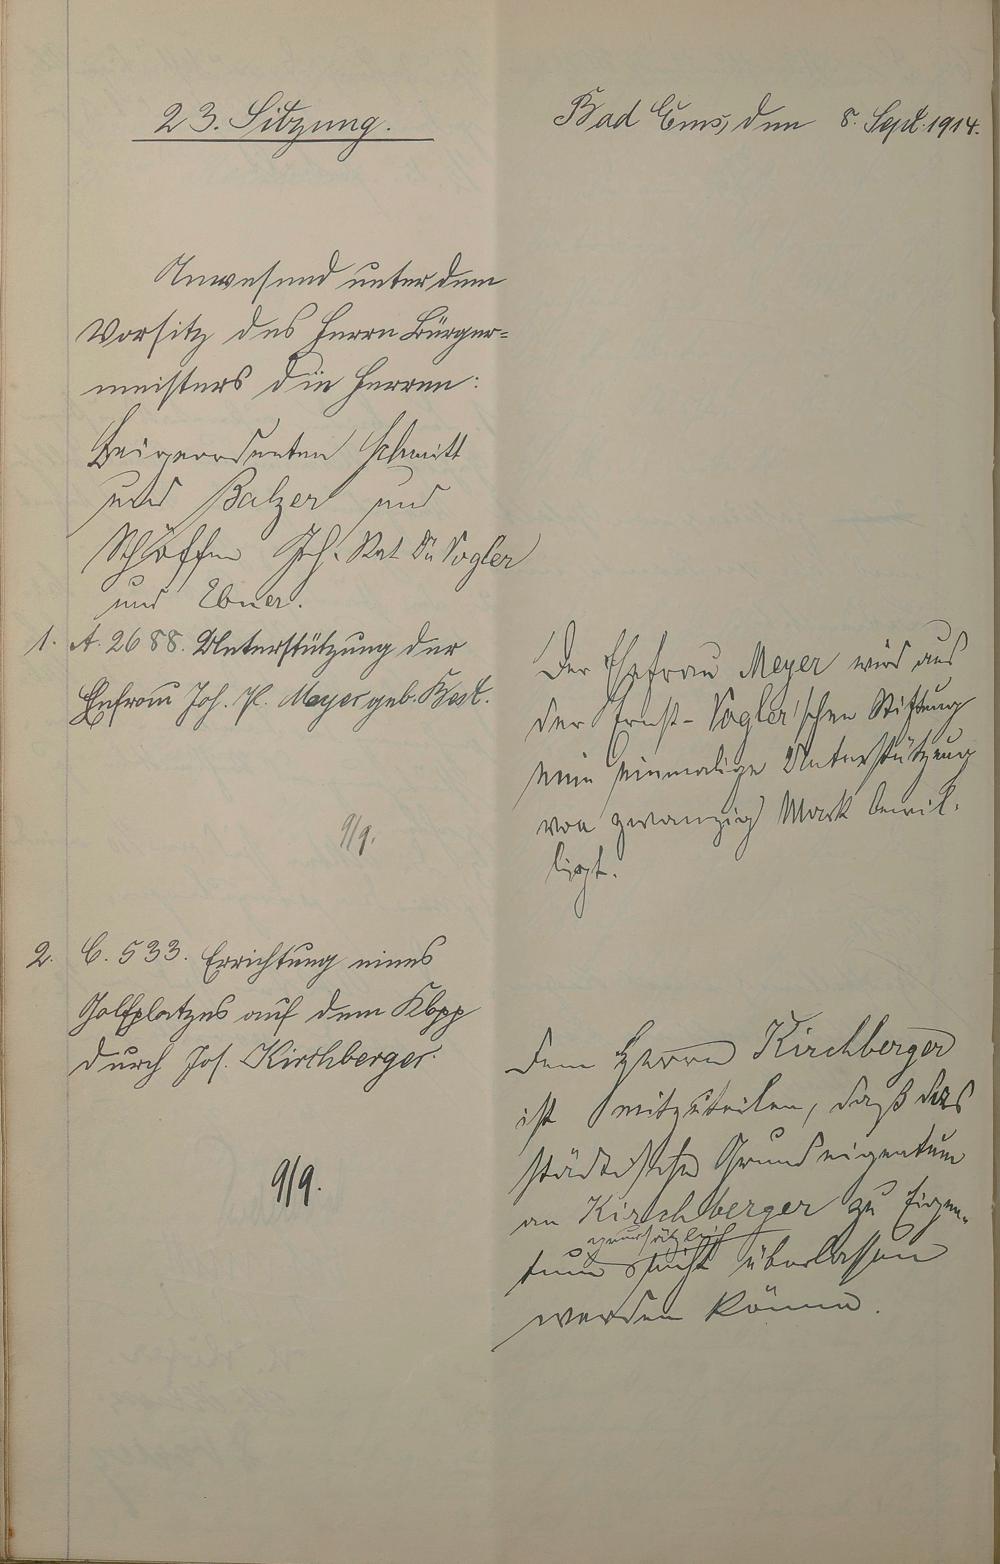 23. Sitzung.
Bad Ems, den 8. Sept. 1914.
Anwesend unter dem
Vorsitz des Herrn Bürger=
meisters die Herren:
Beigeordneten Schmitt
und Balzer und
Schöffen Geh. Rat Dr Vogler
und Ebner.
1. A. 2688. Unterstützung der
Ehefrau Joh. Pl. Meyer geb. Best.
9/9.
Der Ehefrau Meyer wird aus
der Ernst-Vogler'schen Stiftung
eine einmalige Unterstützung
von zwanzig Mark bewil-
ligt.
2. C. 533. Errichtung eines
Golfplatzes auf dem Klopp
durch Jos. Kirchberger.
9/9.
Dem Herrn Kirchberger
ist mitzuteilen, daß das
städtische Grundeigentum
an Kirchberger zu Eigen-
grundsätzlich
tum nicht überlassen
werden könne.